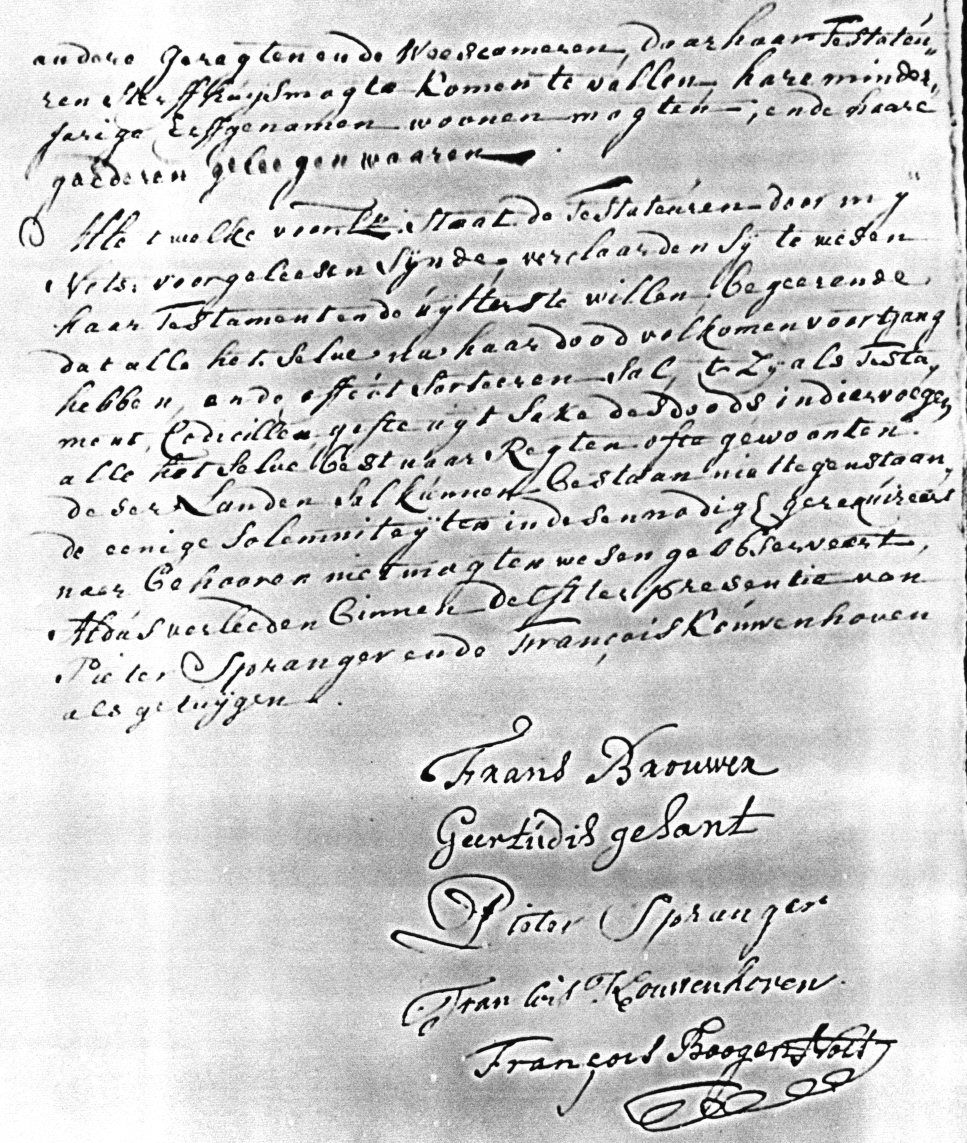 andere geregten ende Weescameren, daar haar Testateu„
ren sterffhuys mogte komen te vallen hare minder„
jarige Erffgenamen woonen mogten, ende haare
goederen geleegen waaren.
Alle 't welke voorsz. staat de Testateuren door mÿ
Nots. voorgeleesen sÿnde, verclaarden sÿ te wesen
haar Testament ende uÿtterste willen begeerende
dat alle het selve, na haar dood volkomen voortgang
hebben, ende effect sorteeren sal, 't Zy als Testa„
ment, Codicillen, gifte uÿt sake des doods in dier voegen
alle het selve best naar Regten ofte gewoonten
deser Landen sal kunnen bestaan niettegenstaan„
de eenige solemniteÿten in desen nodig gerequireert
naer behooren niet mogten wesen geobserveert,
Aldus verleeden binnen Delft ter presentie van
Pieter Spranger ende François Kouwenhoven
als getuÿgen.
Frans Brouwer
Geertudis gesant
Pieter Spranger
Francois Kouwenhoven
François Boogert Nots